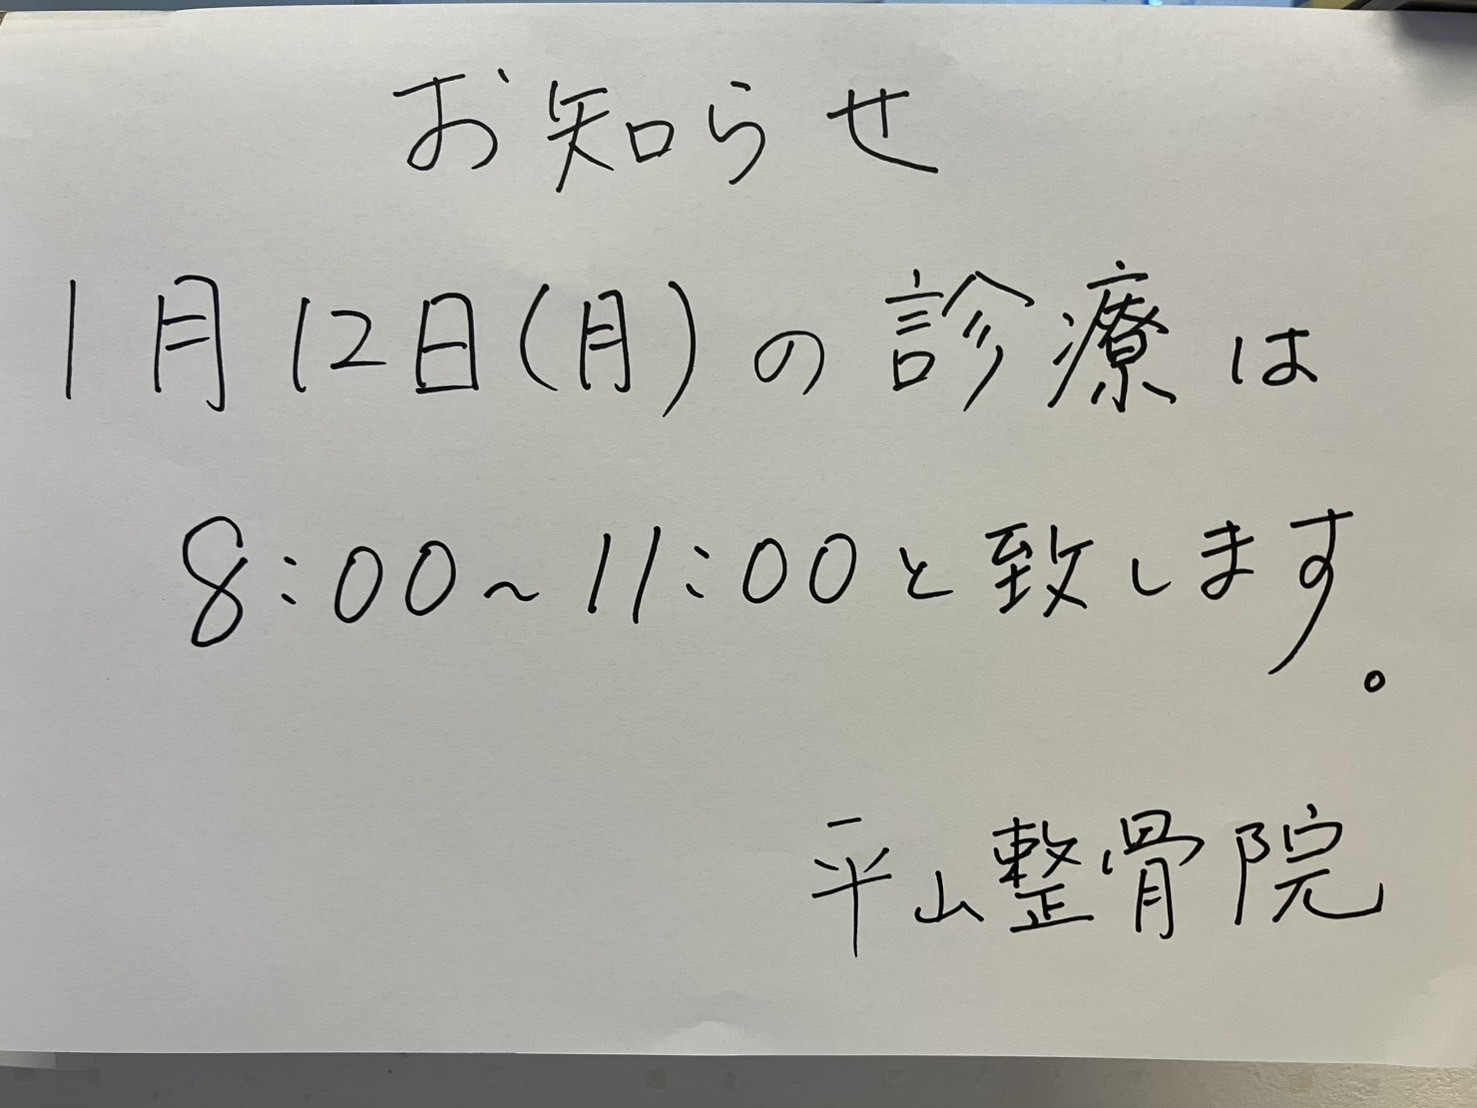 お知らせ
1月12日(月)の診療は
8:00~11:00と致します。
平山整骨院